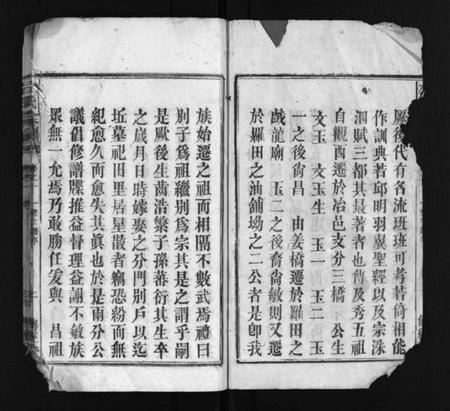 厥後代有各流班班可考若倚相能
作訓典著邱明羽翼聖經以及宗洙
泗賦三都其最著者也雋及秀五祖
自觀西遷於冶邑支分三橋 公生
文玉 文玉生 玉一 玉二 玉
一之後尙昌 由姜橋遷於羅田之
戲龍廟 玉二之後裔尙敏則又遷
於羅田之油舖坳之二公者是卽我
族始遷之祖而相隔不數武焉禮曰
別子爲祖繼別爲宗其是之謂乎嗣
是厥後生齒浩繁子孫蕃衍其生卒
之歲月日時嫁娶之分門別戶以迄
坵墓祀田里居星散者竊恐紛而無
紀愈久而愈失其眞也於是雨分公
議倡修譜牒推益督理益謝不敏族
眾無一允焉乃敢勝任爰與 昌祖